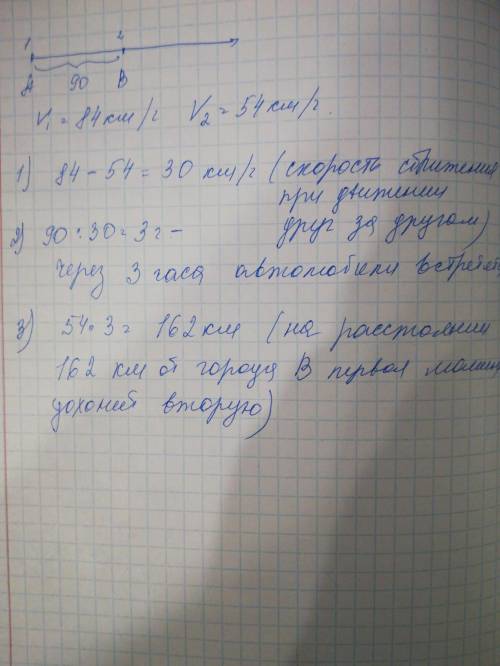 1 2
A 90 B
V₁ = 84 км/ч V₂ = 54 км/ч.
1) 84 - 54 = 30 км/ч (скорость сближения
при движении
друг за другом)
2) 90 : 30 = 3 ч -
Через 3 часа автомобили встретят
3) 54 · 3 = 162 км (на расстоянии
162 км от города В первая машин
догонит вторую)